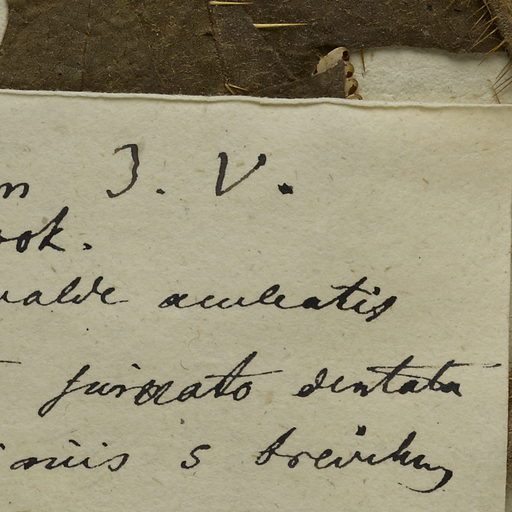 m J. V.
ook.
valde aculeatis
sinuato dentata
nuis 5 brevibus